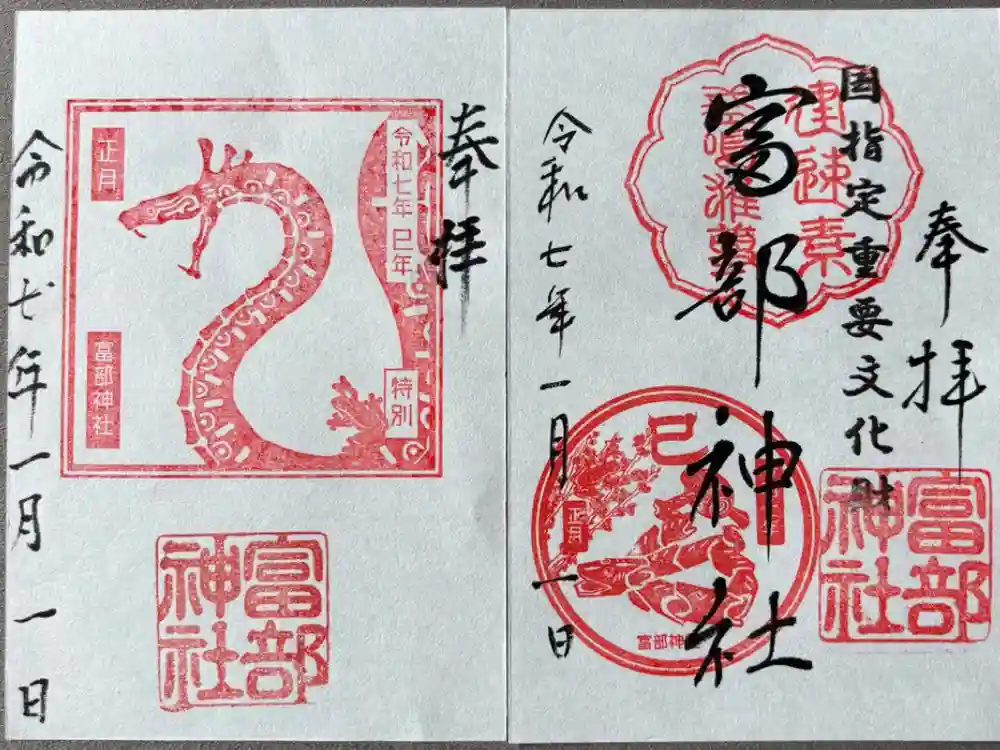 奉拝
令和七年 巳年
特別
正月
富部神社
令和七年一月一日
富部神社
奉拝
国指定重要文化財
建速素
富部神社
巳
正月
富部神
令和七年一月一日
富部神社